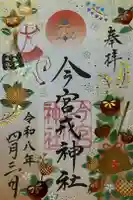 奉拝
今宮戎神社
令和八年
四月三日